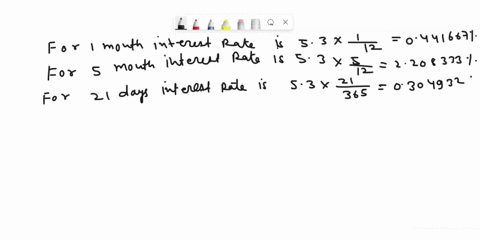 For 1 month interest Rate is 5.3 × 1/12 = 0.441667%
For 5 month interest Rate is 5.3 × 5/12 = 2.208333%.
For 21 days interest Rate is 5.3 × 21/365 = 0.304932